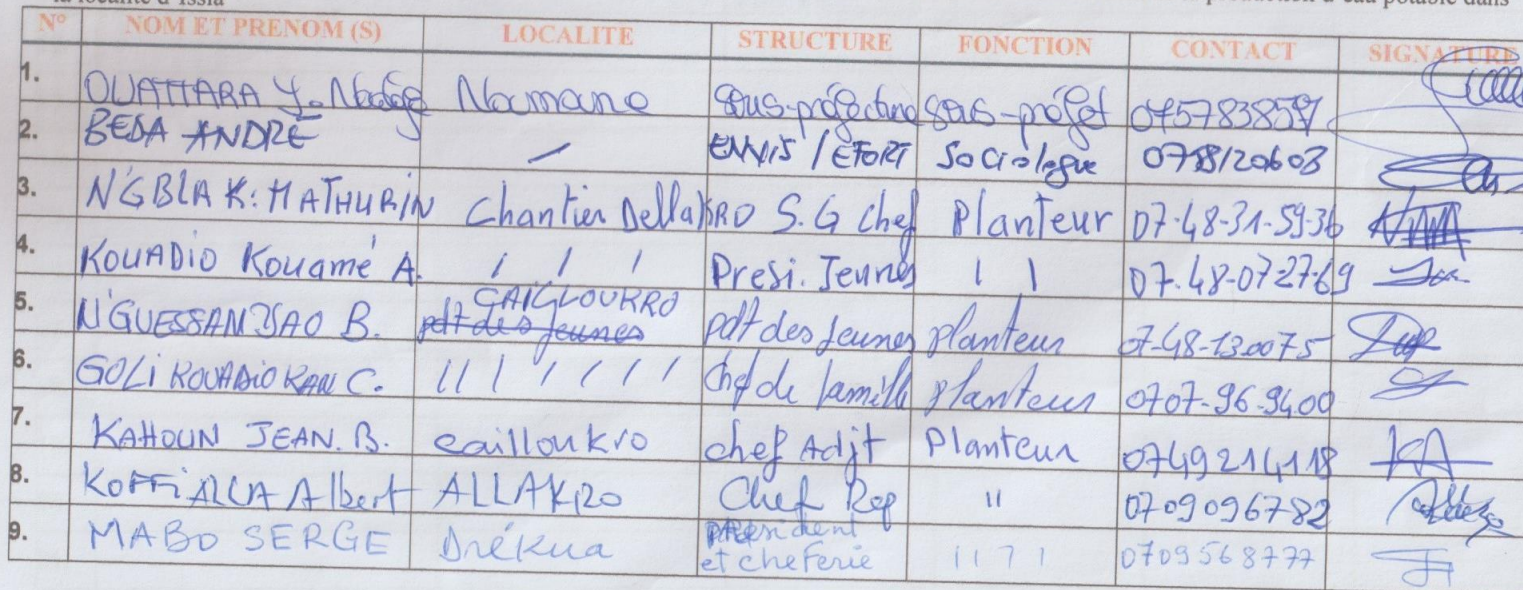 la localité d'Issia production d'eau potable dans
N° NOM ET PRENOM (S) LOCALITE STRUCTURE FONCTION CONTACT SIGNATURE
1. OUATTARA Y. Nadège Namane sous-préfecture sous-préfet 0757838597
2. BEDA ANDRÉ / ENVIS / EFORT Sociologue 0718120603
3. N'GBLA K. MATHURIN Chantier DellaKRO S.G chef Planteur 07-48-31-59-36
4. KOUADIO Kouamé A. / / / Presi. Jeunes / / 07.48-07-27-69
5. N'GUESSAN YAO B. pdt des jeunes CAILLOUKRO pdt des jeunes planteur 07-48-13.00 75
6. GOLI KOUADIO KAN C. / / / / / / / chef de famille planteur 0707-96-9400
7. KAHOUN JEAN. B. cailloukro chef Adjt Planteur 0749214118
8. KOFFI ALLA Albert ALLAKRO Chef Rep " 0709096782
9. MABO SERGE Drékua president et cheferie 0709568777